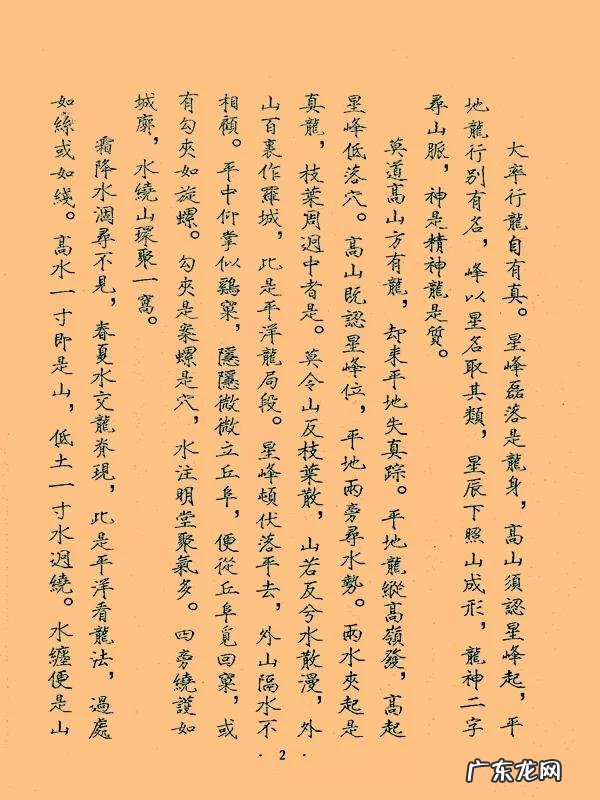 大率行龍自有真。星峰磊落是龍身，高山須認星峰起，平
地龍行別有名，峰以星名取其類，星辰下照山成形，龍神二字
尋山脈，神是精神龍是質。
莫道高山方有龍，却來平地失真踪。平地龍縱高嶺發，高起
星峰低落穴。高山既認星峰位，平地兩旁尋水勢。兩水夾起是
真龍，枝葉周迥中者是。莫令山反枝葉散，山若反兮水散漫，外
山百裏作羅城，此是平洋龍局段。星峰頓伏落平去，外山隔水不
相顧。平中仰掌似鷄窠，隱隱微微立丘阜，便從丘阜覓回窠，或
有勾夾如旋螺。勾夾是案螺是穴，水注明堂聚氣多。四旁繞護如
城廓，水繞山環聚一窩。
霜降水涸尋不見，春夏水交龍脊現，此是平洋看龍法，過處
如絲或如綫。高水一寸即是山，低土一寸水迥繞。水纏便是山
·2·
广东龙网